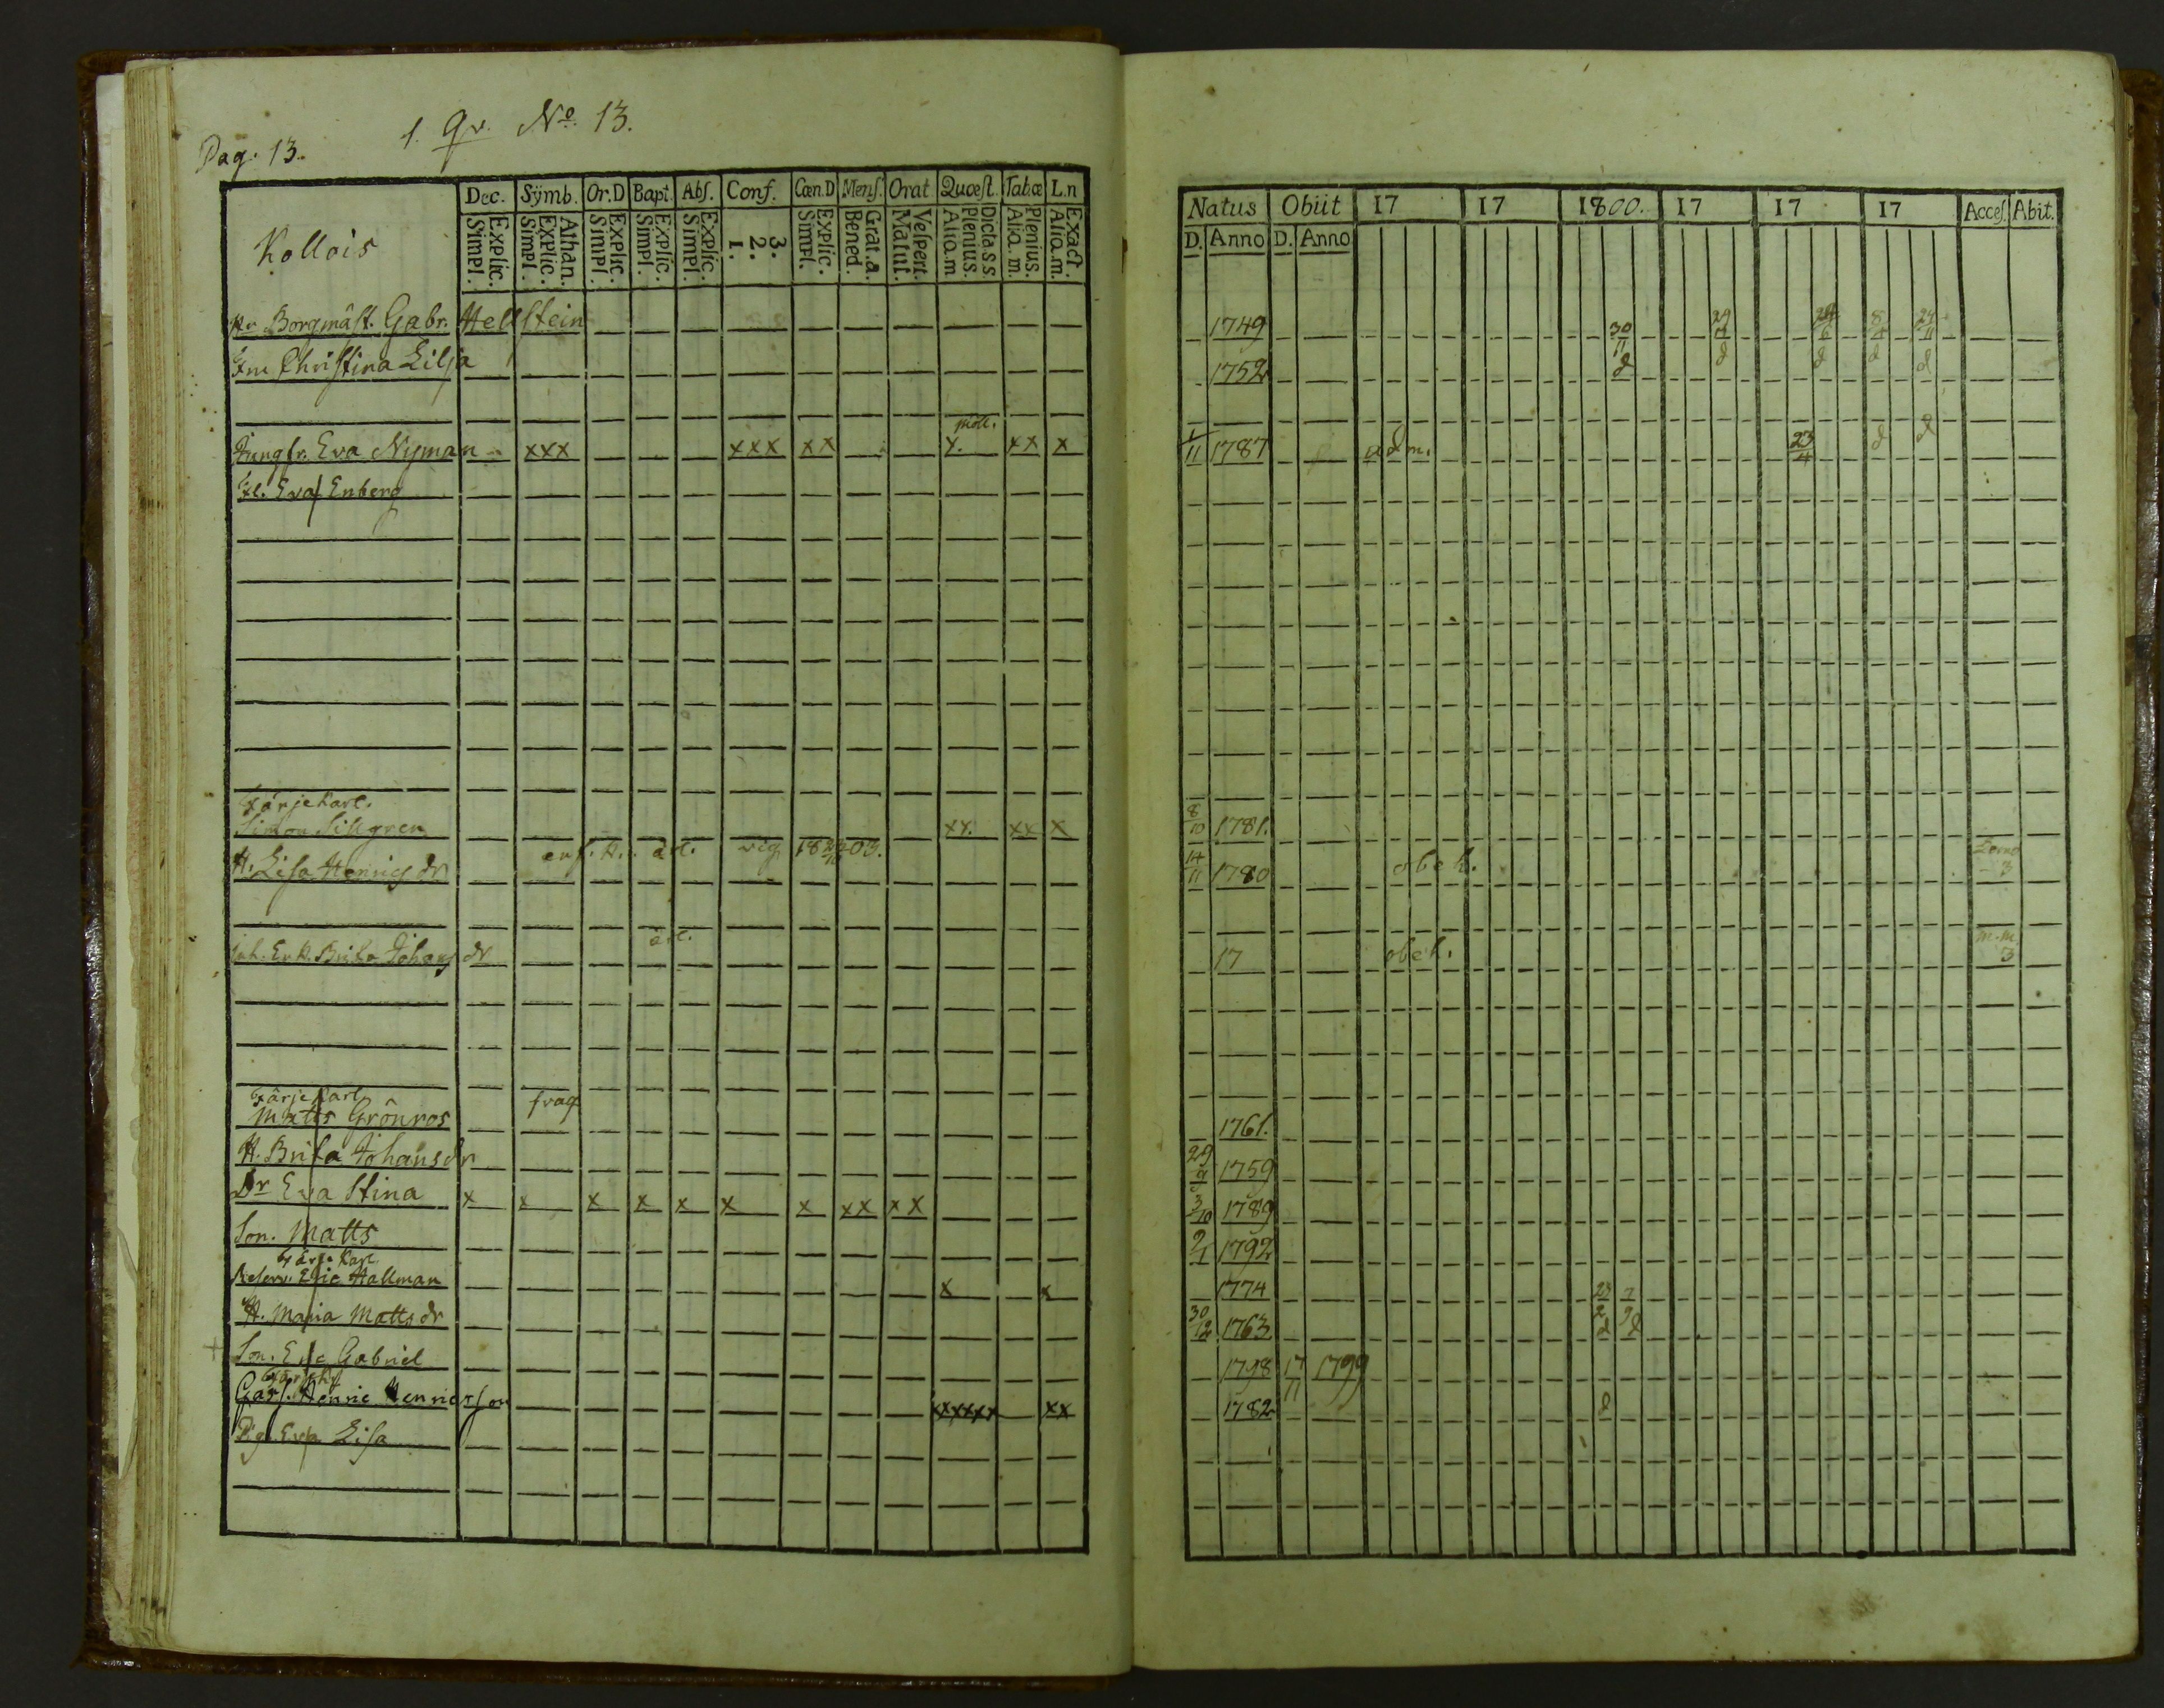 Pag. 13. 1. qv. No. 13.
Dec. Sÿmb. Or.D Bapt. Abs. Conf. Cœn.D Mens. Orat Quæst. Tabæ L.n
Kollois
Explic. Simpl. Athan. Explic. Simpl. Explic. Simpl. Explic. Simpl. Explic. Simpl. 3. 2. 1. Explic. Simpl. Grat.a. Bened. Vespert. Matut. Dicta s.s. Plenius. Alia.m Plenius. Alia.m. Exact. Alia.m.
Hr Borgmäst. Gabr. Hellstein
Fru Christina Lilja
Jungfr. Eva Nyman xxx xxx xx x. xx x
Fl. Eva Enberg
Färjekarl.
Simon Sillgren xx. xx x
H. Lisa Henrics dr vig 1803.
Enk. Brita Johans dr
Färjekarl
Matts Grönros svag
H. Brita Johans dr
Dr Eva Stina x x x x x x x xx xx
Son. Matts
Färjekarl
Reserv. Eric Hallman x x
H. Maria Matts dr
Son. Eric Gabriel
Henric Henricsson xxxxxx xx
Pig. Eva Lisa
Natus Obiit 17 17 1800. 17 17 17 Acces. Abit.
D. Anno D. Anno
1749 30/11 29/4 8/4 24/11
1752 d d d d d
1/11 1787 adm. 23/4 d d
8/10 1781.
14/11 1780 obek. 3
17 obek. 3
1761.
29/9 1759
3/10 1789
2/1 1792
1774
30/12 1763 d d
1798 17/11 1799
1782 d